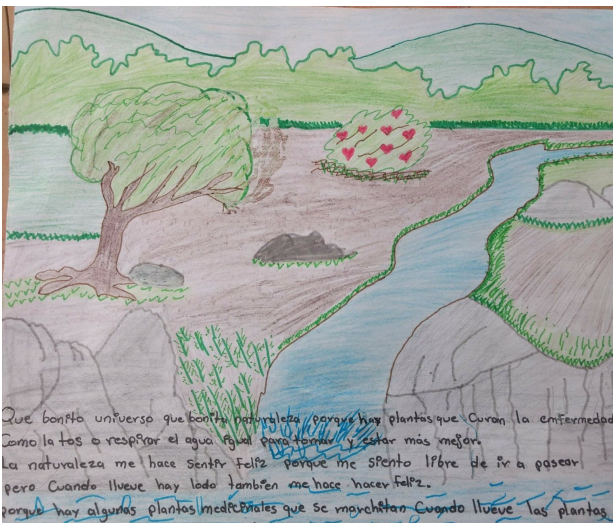 Que bonito universo que bonita naturaleza porque hay plantas que curan la enfermedad
Como la tos o respirar el agua igual para tomar y estar más mejor.
La naturaleza me hace sentir feliz porque me siento libre de ir a pasear
pero Cuando llueve hay lodo tambien me hace hacer feliz.
porque hay algunas plantas medicinales que se marchitan Cuando llueve las plantas